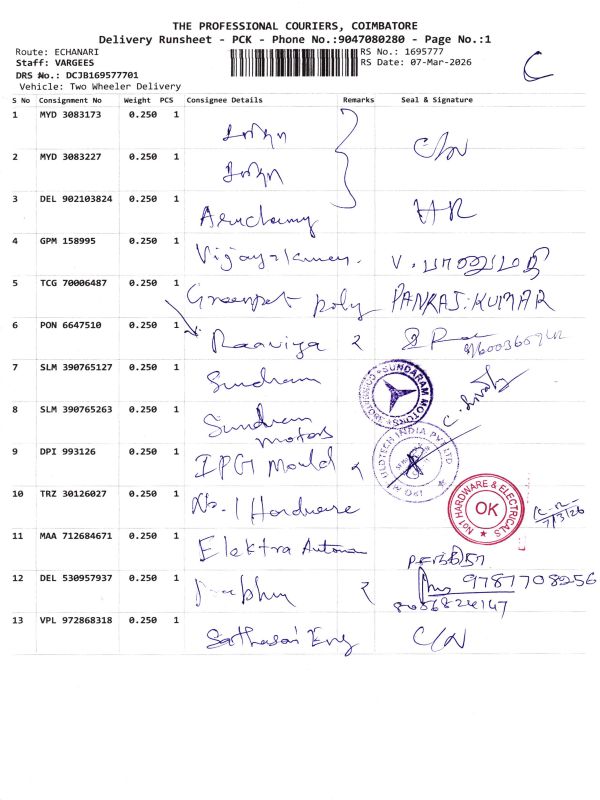 THE PROFESSIONAL COURIERS, COIMBATORE
Delivery Runsheet - PCK - Phone No.:9047080280 - Page No.:1
Route: ECHANARI
RS No.: 1695777
Staff: VARGEES
RS Date: 07-Mar-2026
DRS No.: DCJB169577701
Vehicle: Two Wheeler Delivery
C
S No Consignment No Weight PCS Consignee Details Remarks Seal & Signature
1 MYD 3083173 0.250 1
C/N
2 MYD 3083227 0.250 1
3 DEL 902103824 0.250 1
4 GPM 158995 0.250 1 Vijaya Kumar.
5 TCG 70006487 0.250 1 Greenpet poly PANKAJ.KUMAR
6 PON 6647510 0.250 1 Raaviya
7 SLM 390765127 0.250 1 Sundram
SUNDARAM MOTORS
8 SLM 390765263 0.250 1 Sundram motors
9 DPI 993126 0.250 1 IPG Mould
10 TRZ 30126027 0.250 1 No. 1 Hardware
NO1 HARDWARE & ELECTRICALS
OK
7/3/26
11 MAA 712684671 0.250 1 Elektra Automa
12 DEL 530957937 0.250 1 Prabhu
9787708256
8086824147
13 VPL 972868318 0.250 1 Sathasai Eng C/N